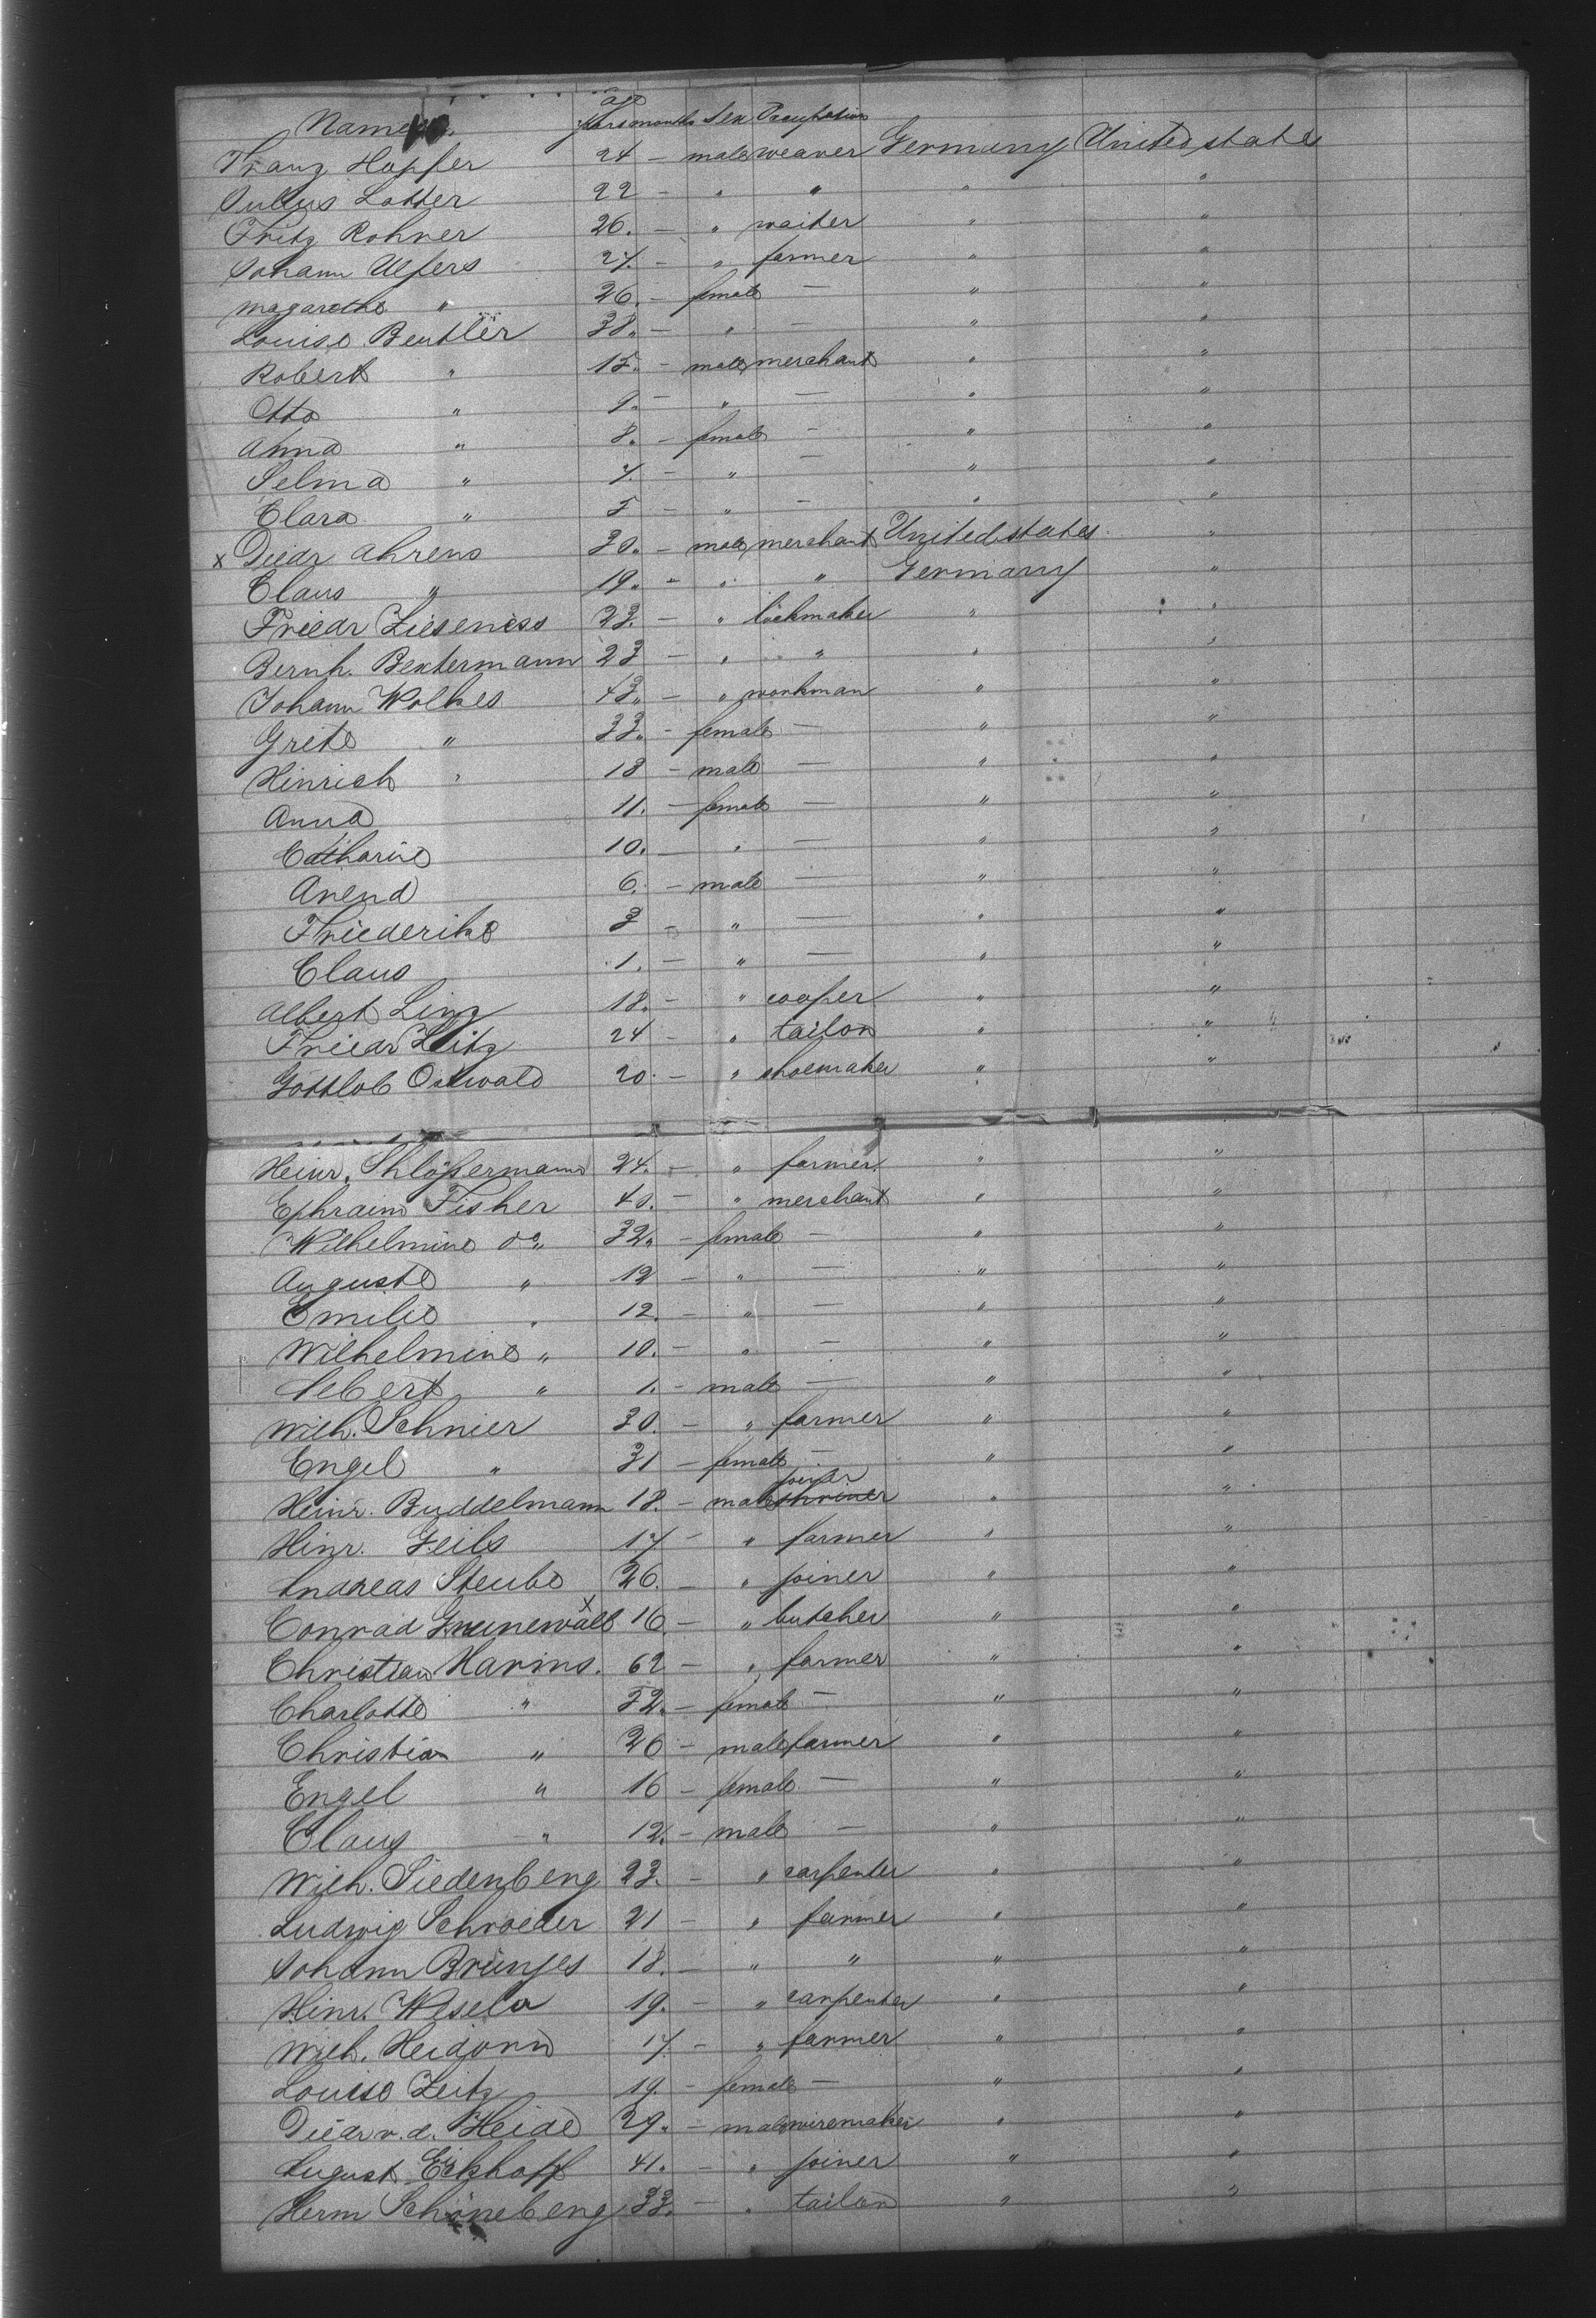 Names. age years months Sex Occupation
Franz Hopfer 24 – male weaver Germany United states
Julius Lotter 22 – " " " "
Fritz Rohrer 26. – " waiter " "
Johann Ulfers 27. – " farmer " "
Magarethe " 26. – female – " "
Louise Beutler 38. – " – " "
Robert " 15. – male merchant " "
Otto " 9. – " – " "
Anna " 8. – female – " "
Selma " 7. – " – " "
Clara " 5 – " – " "
x Diedr Ahrens 30. – male merchant United states "
Claus " 19. – " " Germany "
Friedr Zieseniss 23. – " lockmaker " "
Bernh. Bextermann 23 – " " " "
Johann Wolkes 43. – " workman " "
Grete " 33. – female – " "
Hinrich " 18 – male – " "
Anna 11. – female – " "
Catharine 10. – " – " "
Arend 6. – male – " "
Friederike 3 – " – " "
Claus 1. – " – " "
Albert Linz 18. – " cooper " "
Friedr Zeitz 24 – " tailor " "
Gottlob Ostwald 20. – " shoemaker " "
Heinr. Shlößermann 24. – " farmer. " "
Ephraim Fisher 40. – " merchant " "
Wilhelmine do " 32. – female – " "
Auguste " 12 – " – " "
Emilie " 12. – " – " "
Wilhelmine " 10. – " – " "
Albert " 1. – male – " "
Wilh. Schnier 30. – " farmer " "
Engel " 31 – female – " "
joiner
Heinr. Buddelmann 18. – male shriner " "
Hinr. Geils 17 – " farmer " "
Andreas Steube 26. – " joiner " "
Conrad Grunewald x 16 – " butcher " "
Christian Harms. 62 – " farmer " "
Charlotte " 52. – female – " "
Christian " 26 – male farmer " "
Engel " 16 – female – " "
Claus " 12. – male – " "
Wilh. Siedenberg 23. – " carpenter " "
Ludwig Schroeder 21 – " farmer " "
Johann Brünjes 18. – " " " "
Hinr. Wesela 19. – " carpenter " "
Wilh. Heidorn 17. – " farmer " "
Louise Zeitz 19. – female – " "
Diedr v. d. Heide 29. – male wiremaker " "
August Eickhoff 41. – " joiner " "
Herm Schöneberg 33. – " tailor " "